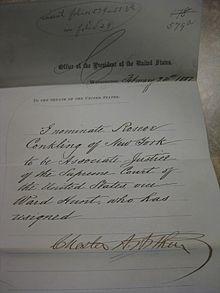 Office of the President of the United States.
Washington, February 24th, 1882
TO THE SENATE OF THE UNITED STATES.
I nominate Roscoe
Conkling of New York
to be Associate Justice
of the Supreme Court of
the United States, vice
Ward Hunt, who has
resigned
Chester A. Arthur